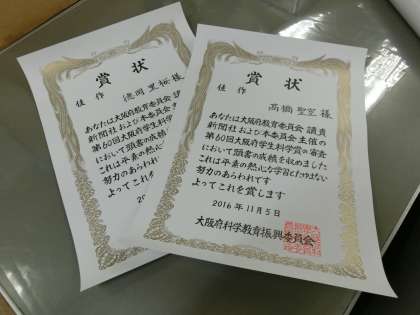 賞状
佳作
徳岡里桜様
あなたは大阪府教育委員会 読
新聞社および本委員会
第60回大阪府学生科
において頭書の成績
これは平素の熱心な
努力のあらわれで
よってこれを賞
賞状
佳作
高橋聖笠様
あなたは大阪府教育委員会 読賣
新聞社および本委員会主催の
第60回大阪府学生科学賞の審査
において頭書の成績を収めました
これは平素の熱心な学習とたゆまない
努力のあらわれです
よってこれを賞します
2016年11月5日
大阪府科学教育振興委員会